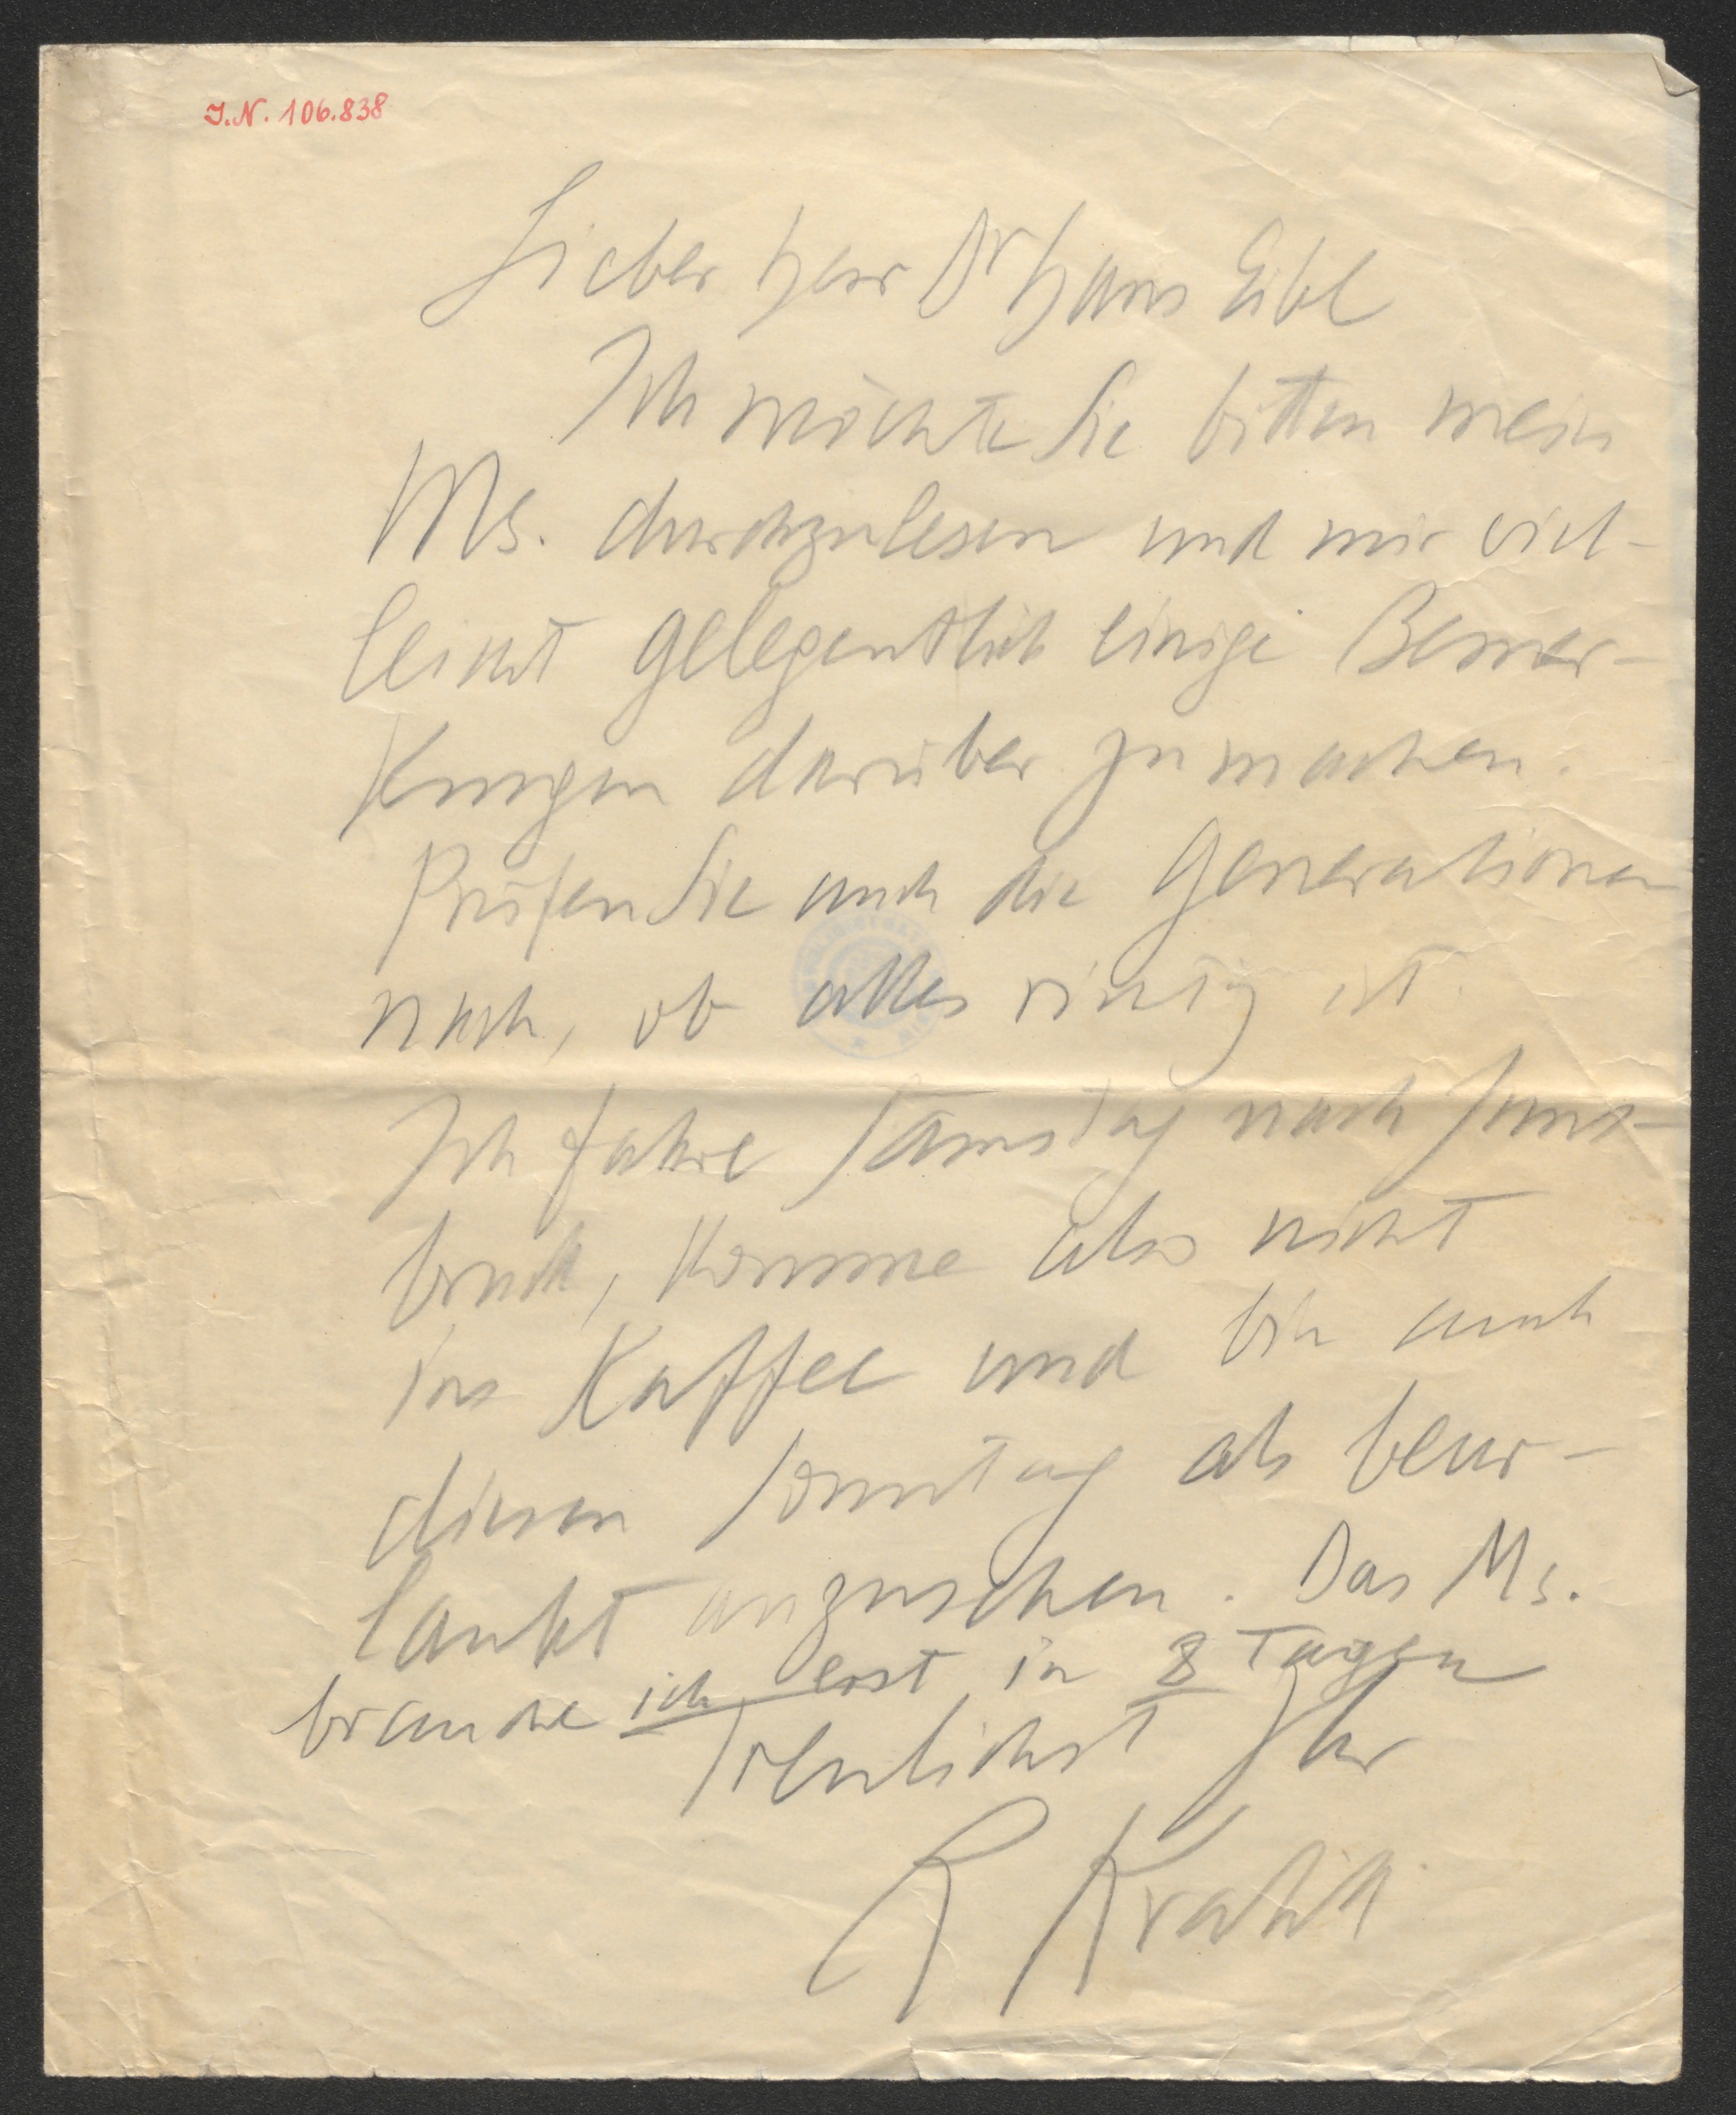 J.N. 106.838
Lieber Herr Dr Hans Eibl
Ich möchte Sie bitten mein
Ms. durchzulesen und mir viel-
leicht gelegentlich einige Bemer-
kungen darüber zu machen.
Prüfen Sie auch die Generationen
nach, ob alles richtig ist.
Ich fahre Samstag nach Inns-
bruck, komme also nicht
ins Kaffee und bin auch
diesen Sonntag als beur-
laubt anzusehen. Das Ms.
brauche ich erst in 8 Tagen
Treulichst Ihr
R Kralik